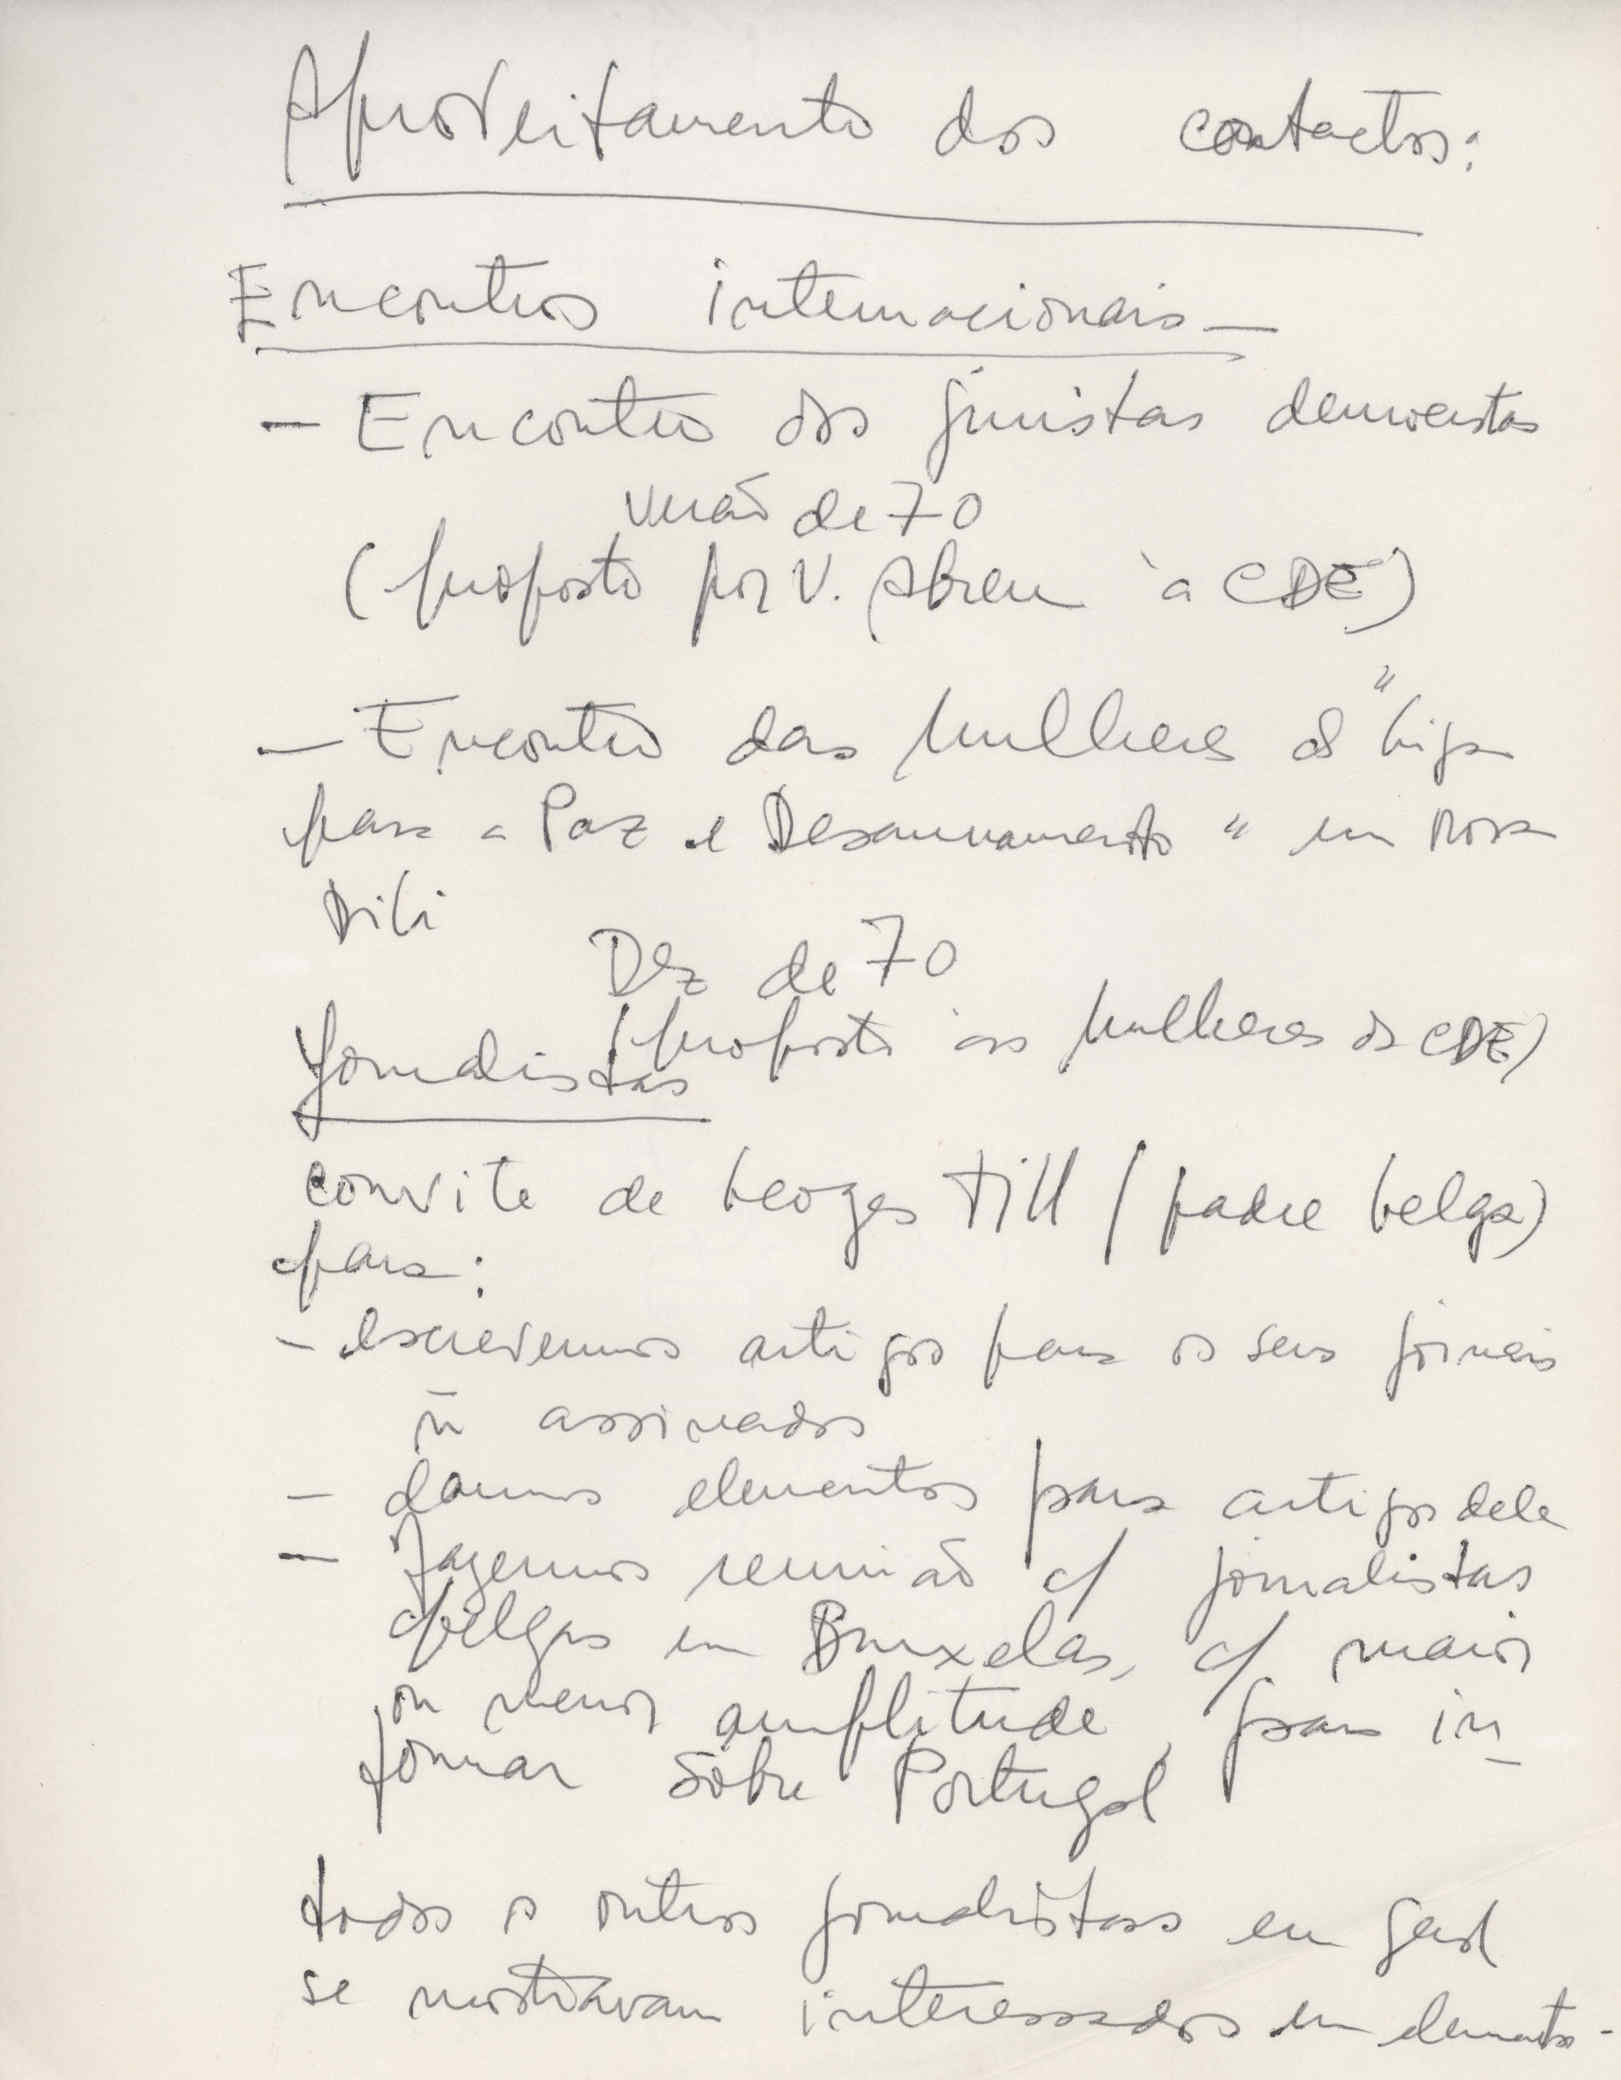 Aproveitamento dos contactos:
Encontros internacionais —
— Encontro dos juristas democratas
verão de 70
(proposto por V. Abreu à CDE)
— Encontro das Mulheres da "Liga
para a Paz e Desarmamento" em Nova
Dili
Dez de 70
(proposto às Mulheres da CDE)
Jornalistas
convite de Georges Till (padre belga)
para:
- escrevermos artigos para os seus jornais
ñ assinados
- darmos elementos para artigos dele
- fazermos reunião c/ jornalistas
belgas em Bruxelas, c/ maior
ou menor amplitude, para in-
formar sôbre Portugal
todos os outros jornalistas em geral
se mostravam interessados em elementos -